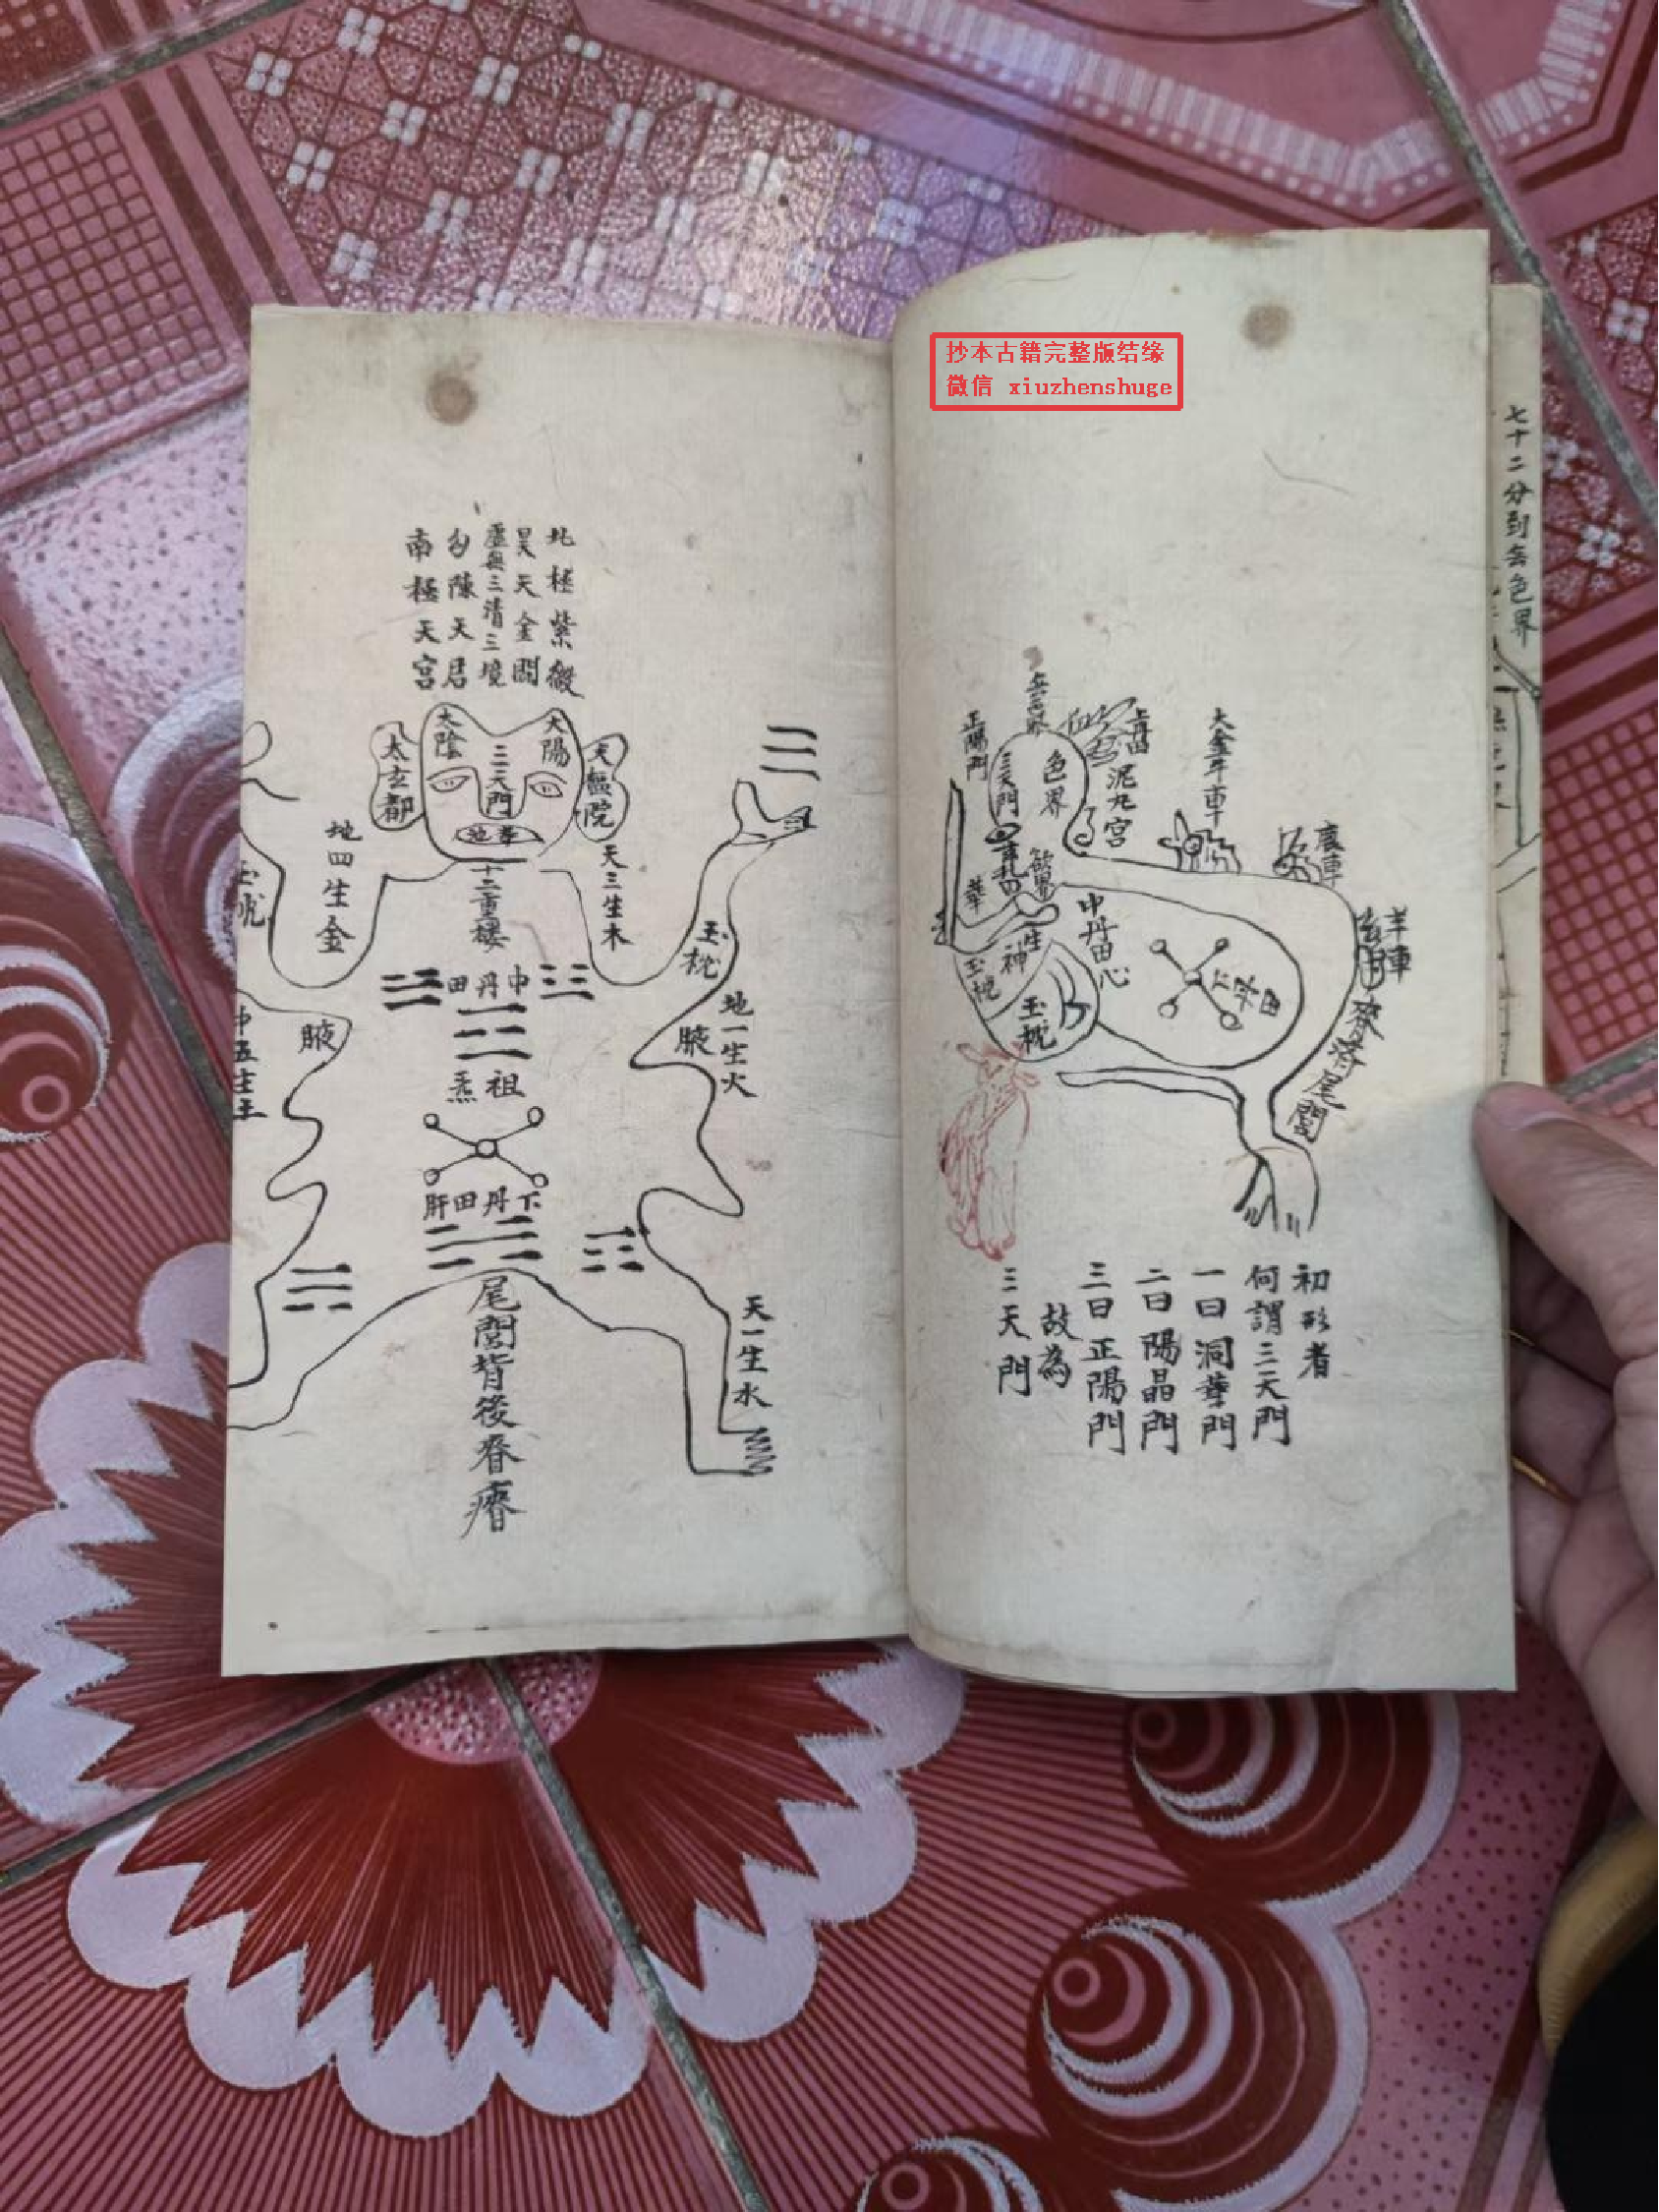 抄本古籍完整版结缘
微信 xiuzhenshuge
七十二分到去色界
大金牛車
鹿車
羊車
上丹田
泥丸宮
色界
三天門
正陽門
欲界
華
中丹田心
神
玉枕
玉枕
脊
尾閭
初形者
何謂三天門
一曰洞華門
二曰陽晶門
三曰正陽門
故為
三天門
北極紫微
昊天金闕
虛無三清三境
勾陳天君
南極天宮
太陽
太陰
三天門
太玄都
天樞院
十二重樓
天三生木
地四生金
玉枕
玉枕
中丹田
地一生火
腋
腋
中五生土
祖炁
下丹田肝
天一生水
尾閭背後脊